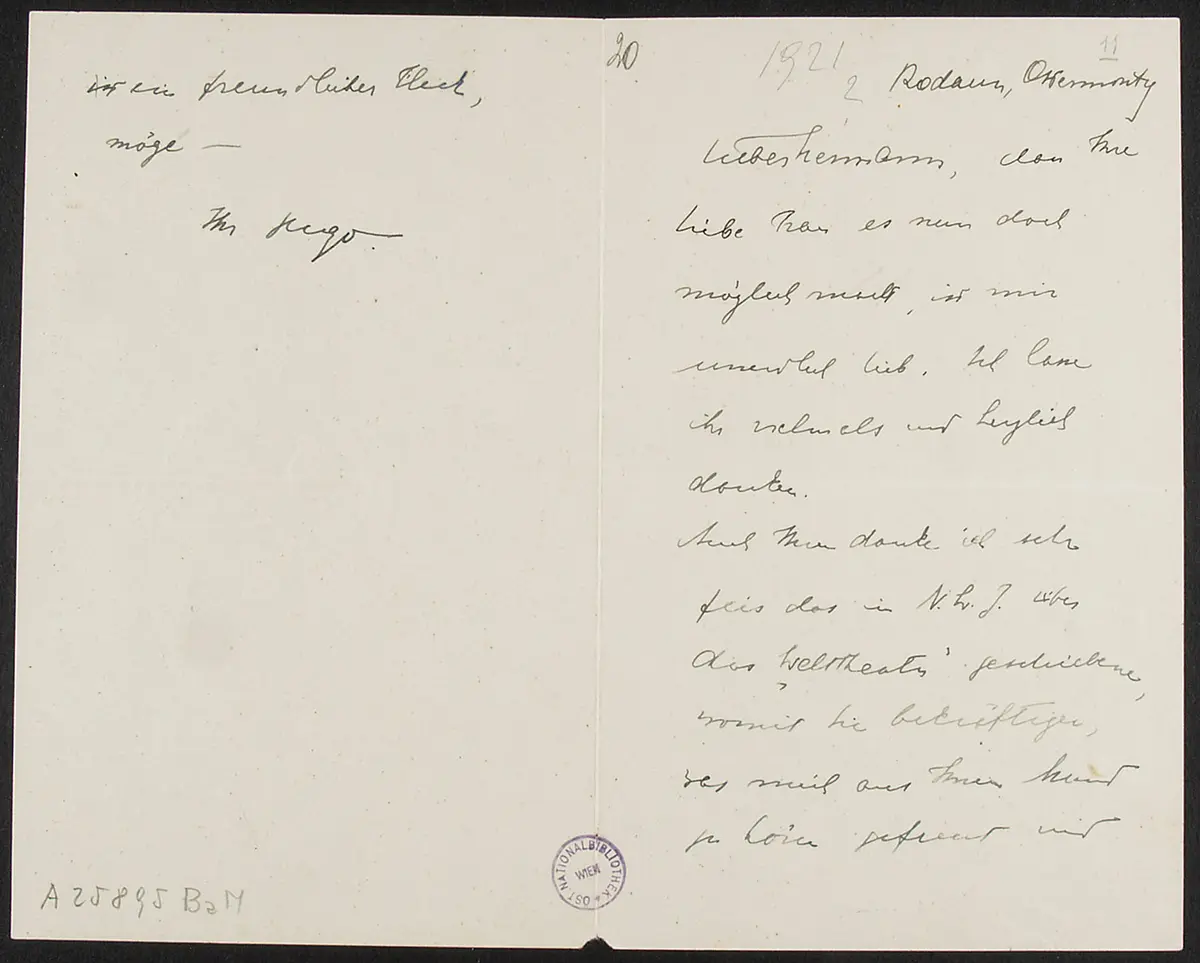 20
1921
2
11
Rodaun, Ostermontg
Lieber Hermann, dass Ihre
liebe Frau es nun doch
möglich macht, ist mir
unendlich lieb. Ich lasse
ihr vielmals und herzlich
danken.
Auch Ihnen danke ich sehr
für das im N. W. J. über
das „Welttheater" geschriebene,
womit Sie bekräftigen,
was mich aus Ihrem Mund
zu hören gefreut und
ist ein freundlicher Fleck,
möge —
Ihr Hugo.
A 25895 BaM
ÖST. NATIONALBIBLIOTHEK
WIEN